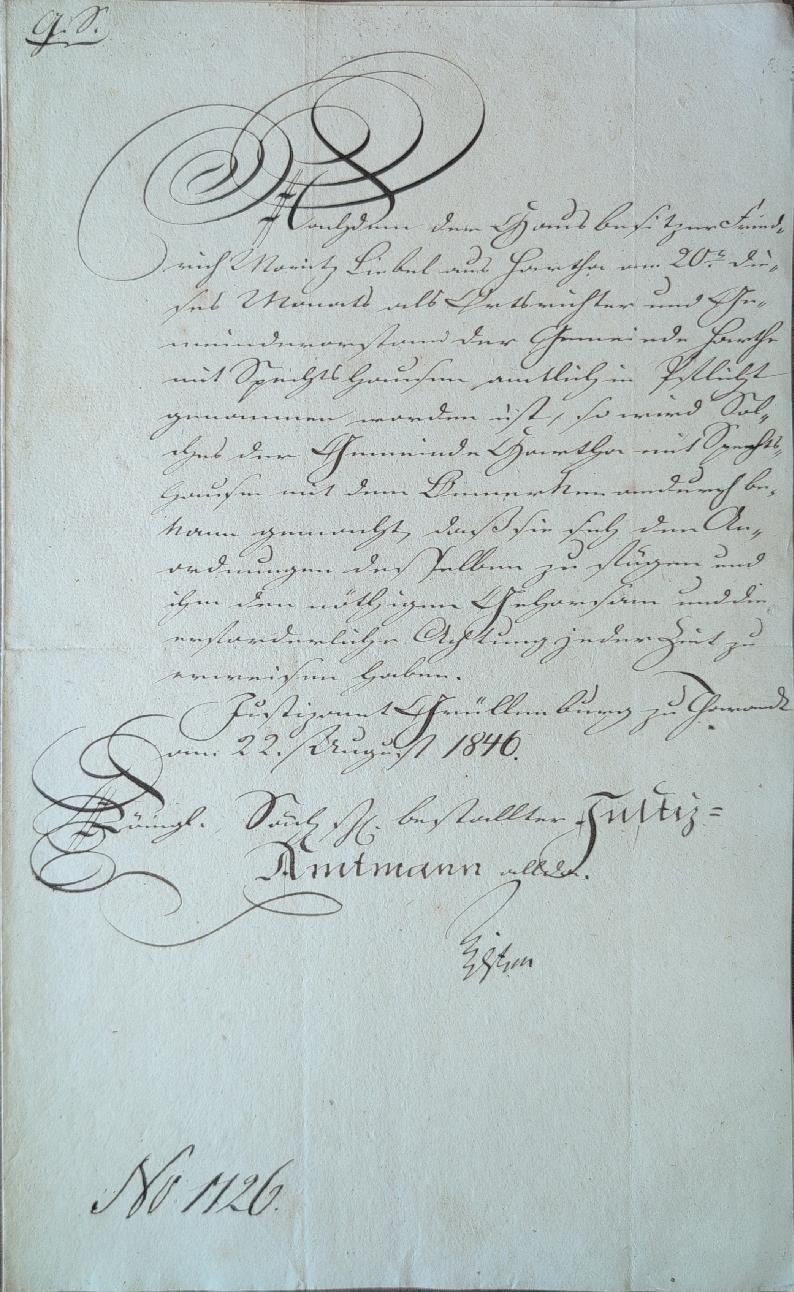 G. S.
Nachdem der Hausbesitzer Fried-
rich Moritz Liebel aus Hartha am 20n. die-
ses Monats als Ortsrichter und Ge-
meindevorstand der Gemeinde Hartha
mit Spechtshausen amtlich in Pflicht
genommen worden ist, so wird Sol-
ches der Gemeinde Hartha mit Spechts-
hausen mit dem Bemerken andurch be-
kannt gemacht, daß sie sich den An-
ordnungen desselben zu fügen und
ihm den nöthigen Gehorsam und die
erforderliche Achtung jeder Zeit zu
erweisen haben.
Justizamt Grüllenburg zu Tharandt
am 22. August 1846.
Königl. Sächs. bestallter Justiz=
Amtmann allda.
No 1126.